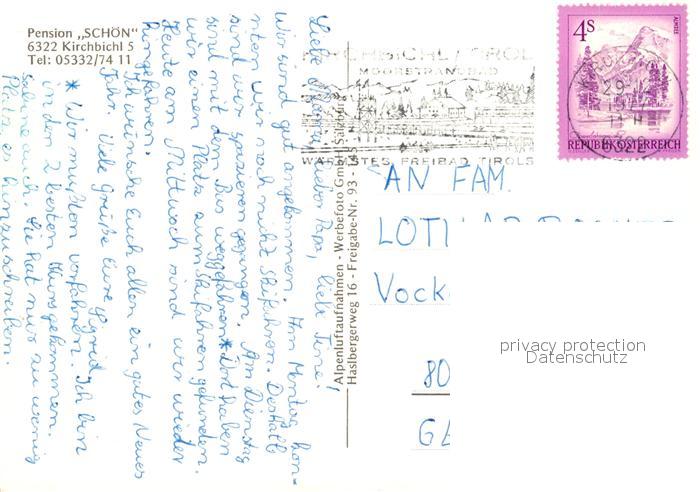 Pension „SCHÖN"
6322 Kirchbichl 5
Tel: 05332/74 11
Liebe Mutti, lieber Papa, liebe Tine!
Wir sind gut angekommen. Am Montag konn-
ten wir noch nicht Skifahren. Deshalb
sind wir spazieren gegangen. Am Dienstag
sind wir mit dem Bus weggefahren.* Dort haben
wir einen Platz zum Skifahren gefunden.
Heute am Mittwoch sind wir wieder
hingefahren.
Ich wünsche Euch allen ein gutes Neues
Jahr. Viele Grüße Eure
* Wir mußten vorfahren. Ich bin
in den 2 besten Kurs gekommen.
auch. Sie hat nur zu wenig
Platz es hinzuschreiben.
Alpenluftaufnahmen - Werbefoto GmbH Salzburg
Haslbergerweg 16 - Freigabe-Nr. 93 -
KIRCHBICHL / TIROL
MOORSTRANDBAD
WÄRMSTES FREIBAD TIROLS
4S
ALMSEE
REPUBLIK ÖSTERREICH
29
6322
AN FAM.
LOTH
Vock
80
GA
privacy protection
Datenschutz